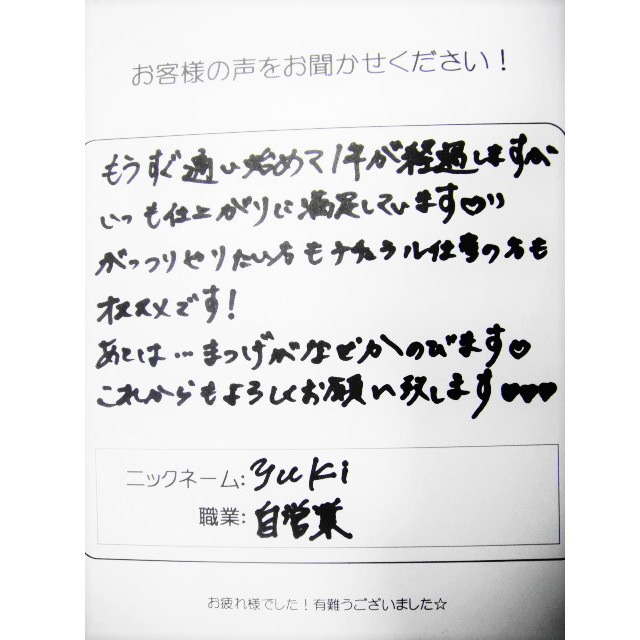 お客様の声をお聞かせください！
もうすぐ通い始めて1年が経過しますが
いつも仕上がりに満足しています♡
がっつりやりたい方もナチュラル仕事の方も
オススメです！
あとは…まつげがなぜかのびます♡
これからもよろしくお願い致します♥♥♥
ニックネーム: yuki
職業: 自営業
お疲れ様でした！有難うございました☆